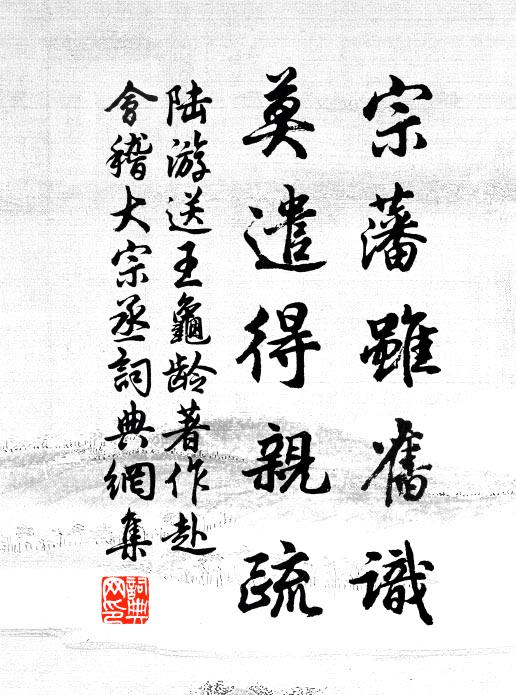 宗藩雖舊識
莫遣得親疏
陸游送王龜齡著作赴
會稽大宗丞詞典網集
詞典
网印